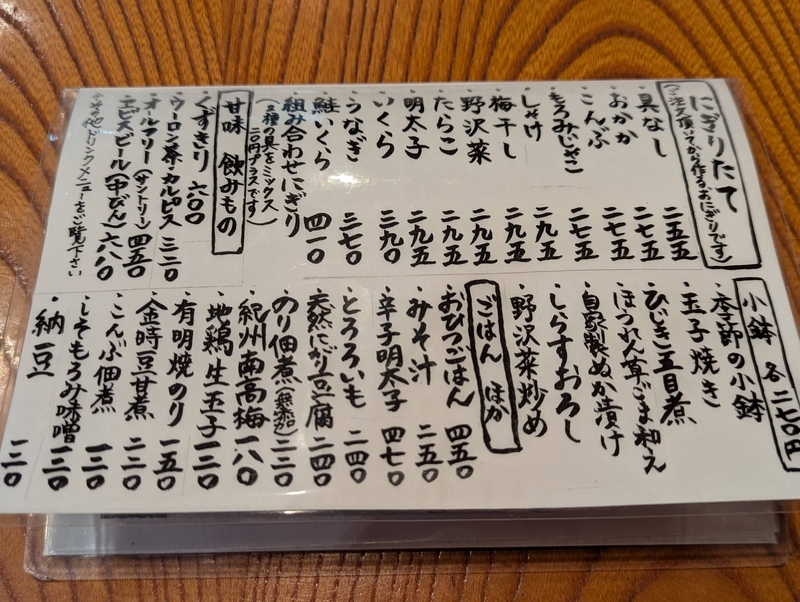 にぎりたて
(ご注文頂いてから作るおにぎりです)
・具なし 二五五
・おかか 二七五
・こんぶ 二七五
・もろみじゃこ 二七五
・しゃけ 二九五
・梅干し 二九五
・野沢菜 二九五
・たらこ 二九五
・明太子 二九五
・いくら 三九〇
・うなぎ 三七〇
・鮭いくら 四一〇
・組み合わせにぎり
(2種の具をミックス
二〇円プラスです)
甘味 飲みもの
・くずきり 六〇〇
・ウーロン茶・カルピス 三二〇
・オールフリー(サントリー) 四五〇
・エビスビール(中びん) 六八〇
◦その他ドリンクメニューをご覧下さい
小鉢 各二七〇円
・季節の小鉢
・玉子焼き
・ひじき五目煮
・ほうれん草ごま和え
・自家製ぬか漬け
・しらすおろし
・野沢菜炒め
ごはん ほか
・おひつごはん 四五〇
・みそ汁 二五〇
・辛子明太子 四七〇
・とろろいも 二四〇
・天然にがり豆腐 二四〇
・のり佃煮(無添加) 二三〇
・紀州南高梅 一八〇
・地鶏生玉子 一三〇
・有明焼のり 一五〇
・金時豆甘煮 二二〇
・こんぶ佃煮 一三〇
・しそもろみ味噌 一三〇
・納豆 一三〇